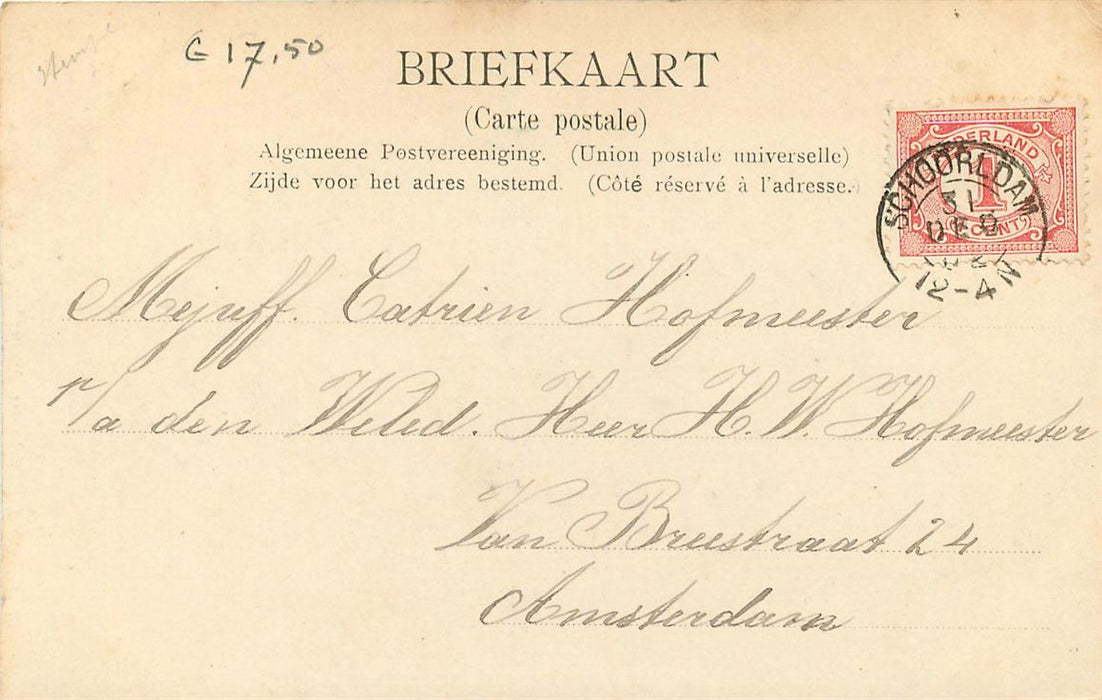 G 17,50
BRIEFKAART
(Carte postale)
Algemeene Postvereeniging. (Union postale universelle)
Zijde voor het adres bestemd. (Côté réservé à l'adresse.)
NEDERLAND
1
CENT
SCHOORLDAM
31
DEC
12-4 N
Mejuff. Catrien Hofmeester
p/a den Weled. Heer H. W. Hofmeester
Van Breestraat 24
Amsterdam